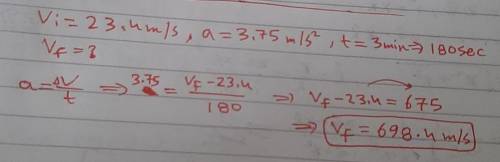 Vi = 23.4 m/s, a = 3.75 m/s², t = 3min ⇒ 180sec
Vf = ?
a = ΔV/t ⇒ 3.75 = Vf - 23.4/180 ⇒ Vf - 23.4 = 675
⇒ Vf = 698.4 m/s